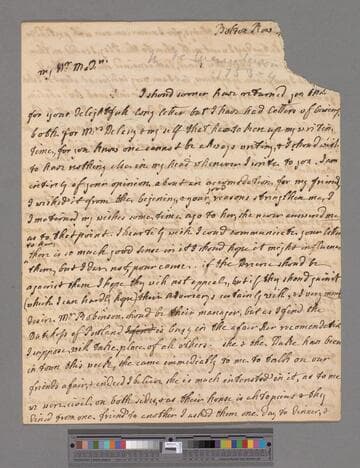 Bolton Row
my Dr Madm
I shoud sooner have returned you thks
for your delightfull long letter but I have had letters of business
both for Mrs Delany & my self that have taken up my writing
time, for you know one cannot be always writing, & I shoud wish
to have nothing else in my head whenever I write to you. I am
entirely of your opinion about an accomodation, for my friend,
I wish'd it from the begining & your reasons strengthen me,
I mentioned my wishes some time ago to her, she never answered me
as to that point. I heartily wish I coud communicate your letter
to them
there is so much good sence in it I think hope it might influence
them, but I dare not, pour cause. if the Decree shoud be
against them I hope they will not appeal, but if they shoud gain it
(which I can hardly hope) their Adversary certainly will, & I very much
desire Mr Robinson shoud be their manager, but as I find the
Dutchess of Portland is busy in the affair her recomendation
I suppose will take place of all others. she & the Duke has been
in town this week, she came immediately to me to talk on our
friends affair, & indeed I believe she is much interested in it, as to me
very civil on both sides, & as their house is &c they
dined from one friend to another I asked them one day to dinner, &